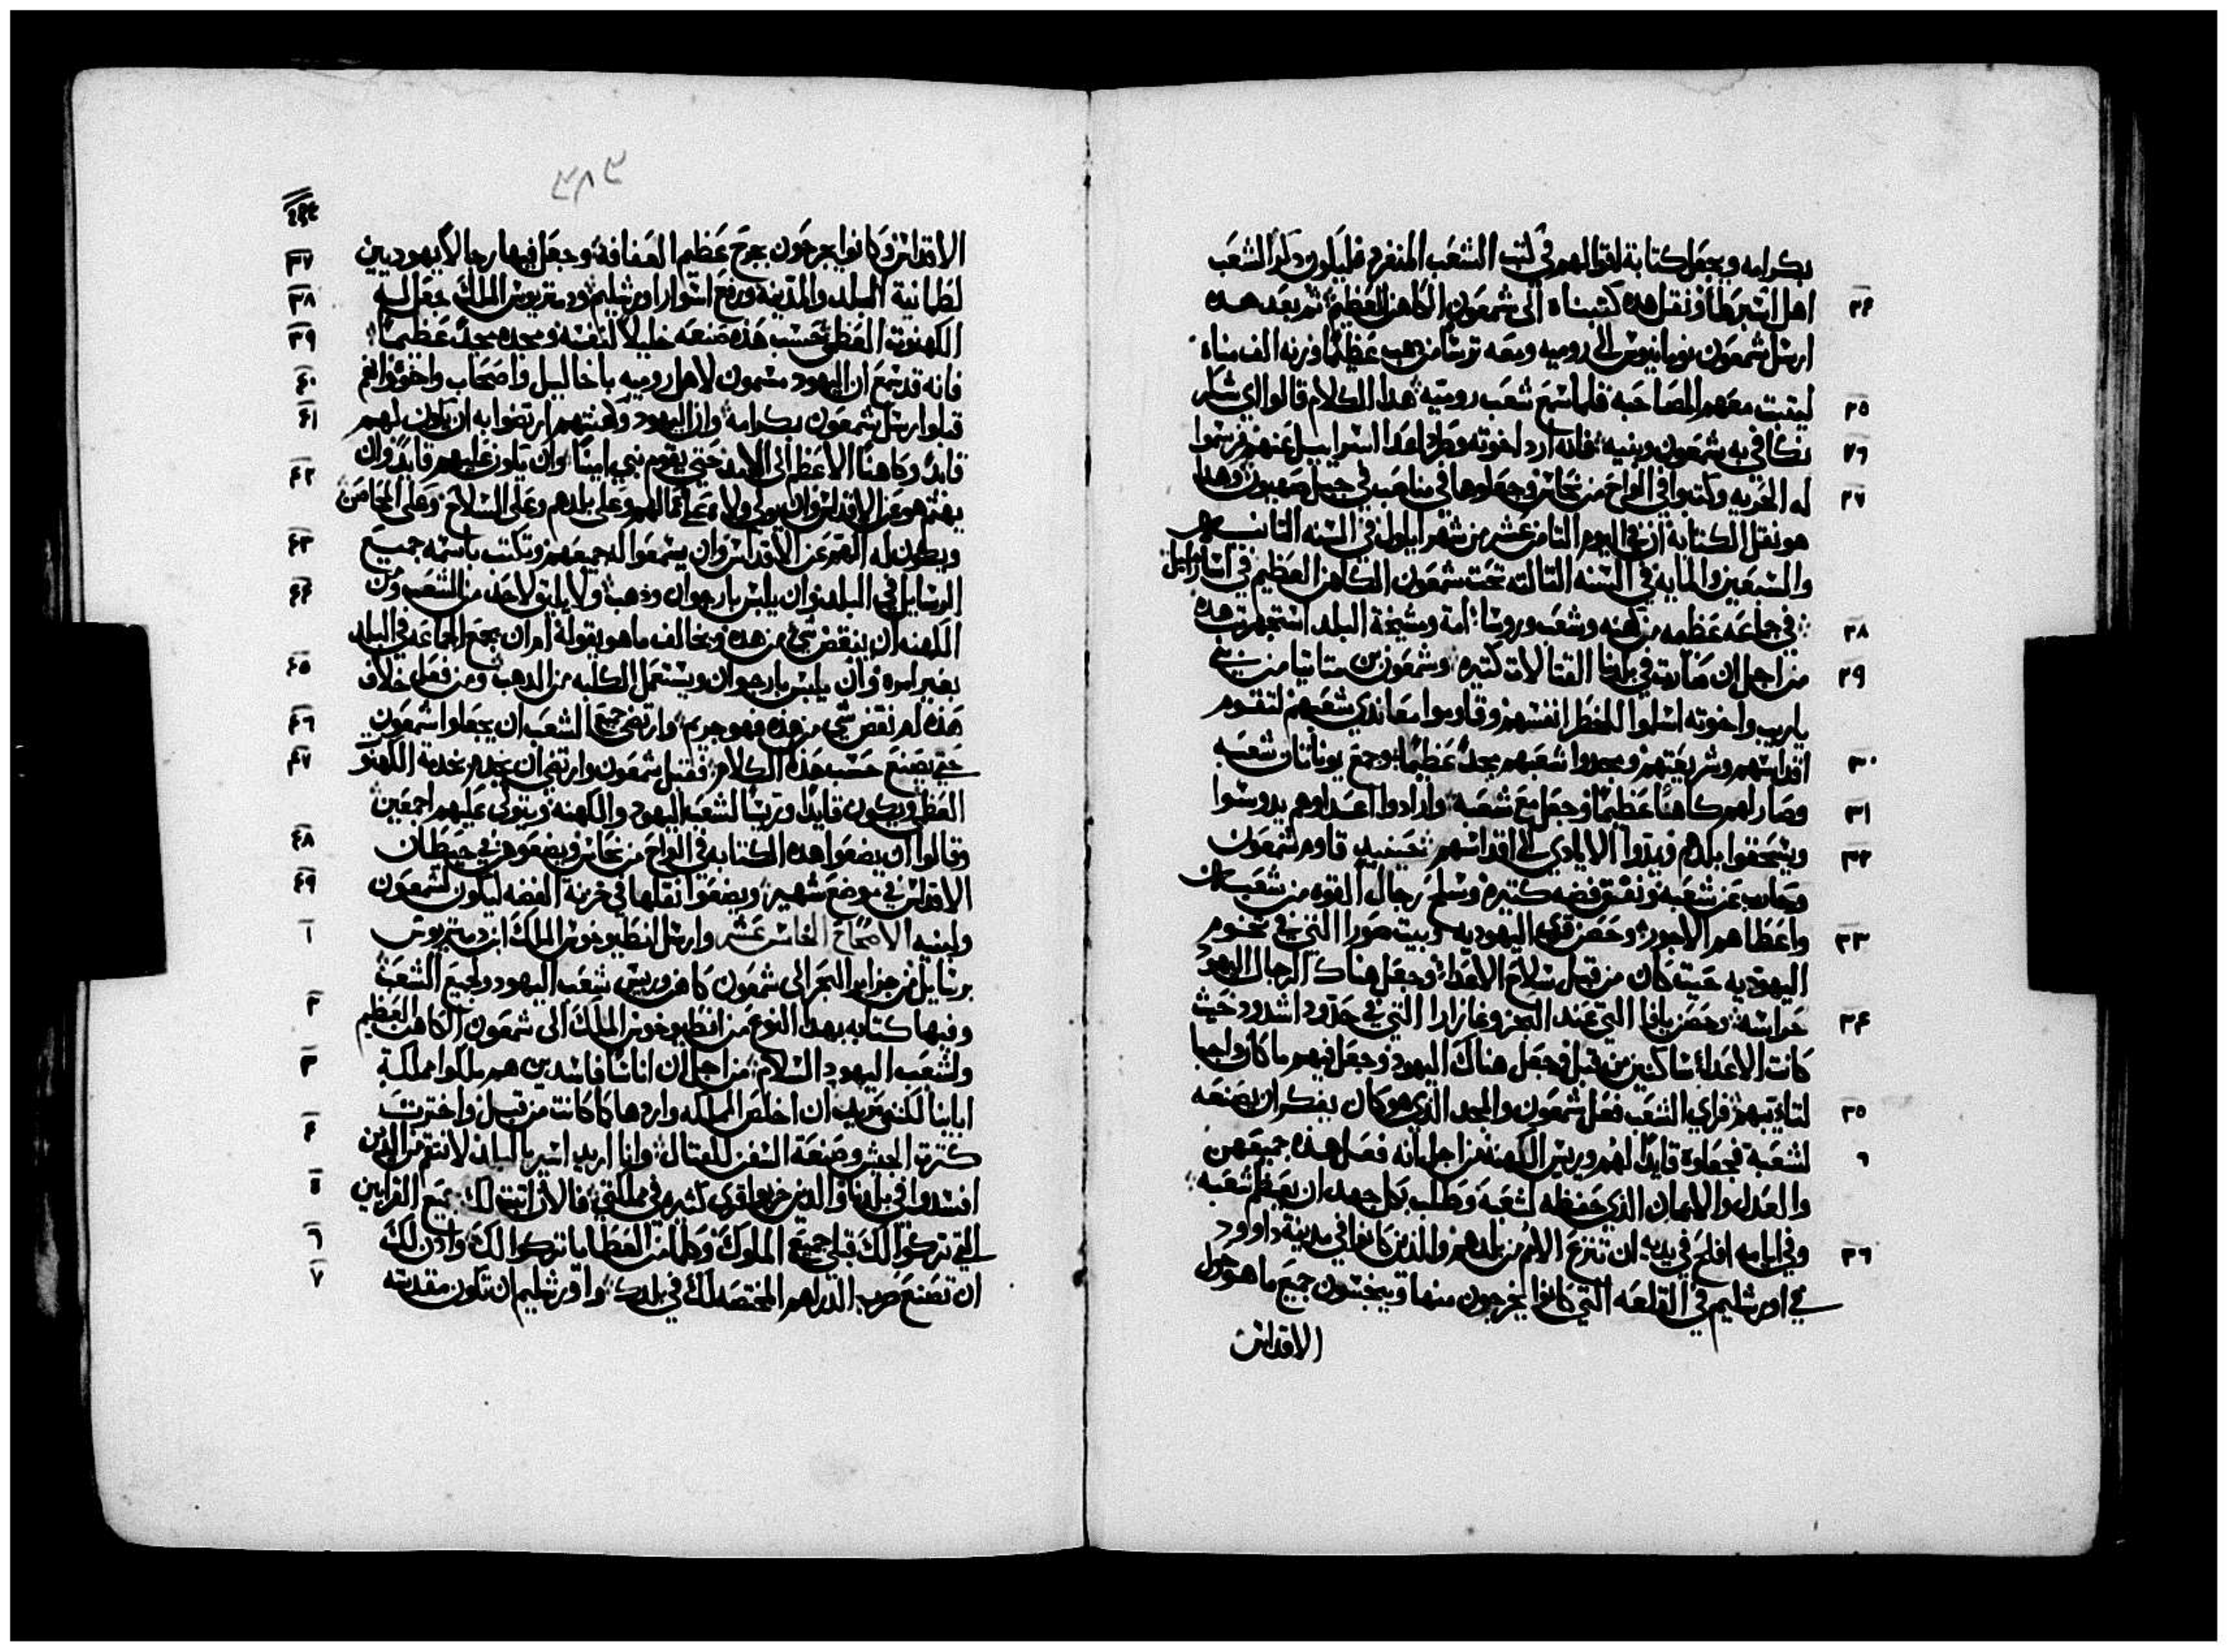 بكرامه ويجعل كتابة لاقوالهم في كتب الشعب المنفرد فليكون ذكر الشعب
٢٤ اهل اسبرطا ونقل هده كتبناه الى شمعون الكاهن العظيم ثم بعد هده
ارسل شمعون نومانيوس الى روميه ومعه ترسا من دهب عظيما وزنه الف مناه
٢٥ ليتبت معهم المصاحبه فلما سمع شعب روميه هدا الكلام قالوا اي شكر
٢٦ نكافي به شمعون وبنيه فانه ارد اخوته وطرد اعدا اسراييل عنهم فرسموا
٢٧ له الحريه وكتبوا في الواح من نحاس وجعلوها في مناصب في جبل صهيون وهدا
هو نقل الكتابة ان في اليوم التامن عشر من شهر ايلول في السنه التانيه
والسبعين والمايه في السنه التالته تحت شمعون الكاهن العظيم في
٢٨ في جماعه عظمه من كهنه وشعب وروسا امة ومشيخة البلد استجهرت هده
٢٩ من اجل ان صارت في بلدنا القتالات كتيره وشمعون بن متاتيا من بني
ياريب واخوته اسلموا للخطر انفسهم وقاوموا معاندي شعبهم لتقوم
٣٠ اقداسهم وشريعتهم ومجدوا شعبهم مجدا عظيما وجمع يوناتان شعبه
٣١ وصار لهم كاهنا عظيما وجعل مع شعبه وارادوا اعداوهم يدوسوا
٣٢ ويسحقوا بلدهم ويمدوا الايادي الى اقداسهم حينيد قاوم شمعون
وحارب عن شعبه ونفق فضه كتيره وسلح رجال القوه من شعبه
٣٣ واعطاهم الاجور وحصن قرى اليهوديه وبيت صورا التي في تخوم
اليهوديه حيت كان من قبل سلاح الاعدا وجعل هناك الرجال اليهود
٣٤ حراسه وحصن يافا التي عند البحر وغازارا التي في حدود اشدود حيث
كانت الاعدا ساكنين من قبل وجعل هناك اليهود وجعل فيهم ما كان واجبا
٣٥ لتاديبهم فراى الشعب فعل شمعون والمجد الدي هو كان يفكر ان يصنعه
٦ لشعبه فجعلوه قايدا لهم وريس الكهنه من اجل انه فعل هذه جميعهن
والعدل والايمان الذي حفظه لشعبه وطلب بكل جهد ان يعظم شعبه
٣٦ وفي ايامه افلح في يديه ان تنزع الامم من بلدهم والذين كانوا في مدينة داوود
في اورشليم في القلعه التي كانوا يخرجون منها وينجسون جميع ما هو حول
الاقداس
الاقداس وكانوا يجرحون بجرح عظم العفافة وجعل فيها رجالا يهوديين
٣٧ لطمانية البلد والمدينه ورفع اسوار اورشليم
٣٨ ودمتريوس الملك جعل له
٣٩ الكهنوت العظمى بحسب هذه صنعه خليلا لنفسه ومجده مجدا عظيما
٤٠ فانه قد سمع ان اليهود مسمون لاهل روميه باخاليل واصحاب واخوه وانهم
٤١ قبلوا ارسل شمعون بكرامه وان اليهود وكهنتهم ارتضوا به ان يكون لهم
قايدا وكاهنا الاعظم الى الابد حتى يقوم نبي امينا وان يكون عليهم قايدا وان
٤٢ يهتم هو عن الاقداس وان يولي ولاه على اعمالهم وعلى بلدهم وعلى السلاح وعلى المحامن
٤٣ ويكون له الهم عن الاقداس وان يسمعوا له جميعهم وتكتب باسمه جميع
٤٤ الرسايل في البلد وان يلبس بارجوان ودهب ولا يليق لاحد من الشعب ومن
الكهنه ان ينقض شي من هده ويخالف ما هو يقوله او ان يجمع الجماعه في البلد
٤٥ بغير امره وان يلبس بارجوان ويستعمل الكلبه من الدهب ومن فعل خلاف
٤٦ هذه او نقض شي من هذه فهو جريم وارتضى جميع الشعب ان يجعلوا شمعون
٤٧ حتى يصنع حسب هذه الكلام فقبل شمعون وارتضى ان يخدم بخدمة الكهنو
العظمى ويكون قايدا وريسا لشعب اليهود والكهنه ويتولى عليهم اجمعين
٤٨ وقالوا ان يضعوا هده الكتابه في الواح من نحاس ويضعوهن في حيطان
٤٩ الاقداس في موضع شهير ويضعوا نقلها في خزنه الفضه ليكون لشمعون
١ ولبنيه الاصحاح الخامس عشر وارسل انطيوخوس الملك ابن دمتريوس
برسايل من جزاير البحر الى شمعون كاهن وريس شعب اليهود ولجميع الشعب
٢ وفيها كتابه بهدا النوع من انطيوخوس الملك الى شمعون الكاهن العظيم
٣ ولشعب اليهود السلام من اجل ان اناسا فاسدين هم ملكوا مملكة
ابايينا لكنني نريد ان اخلص المملكه واردها كما كانت من قبل واخترت
٤ كترة الجيش وصنعة السفن للقتال وانا اريد اسير بالبلد لانتقم من الذين
٥ افسدوا في بلدنا والدين خربوا قرى كثيره في مملكتي فالان اتبت لك جميع القرابين
٦ التي تركوا لك قبلي جميع الملوك وكلما من العطايا تركوا لك وادن لك
٧ ان تصنع ضرب الدراهم المختصه لك في بلدك واورشليم ان تكون مقدسه